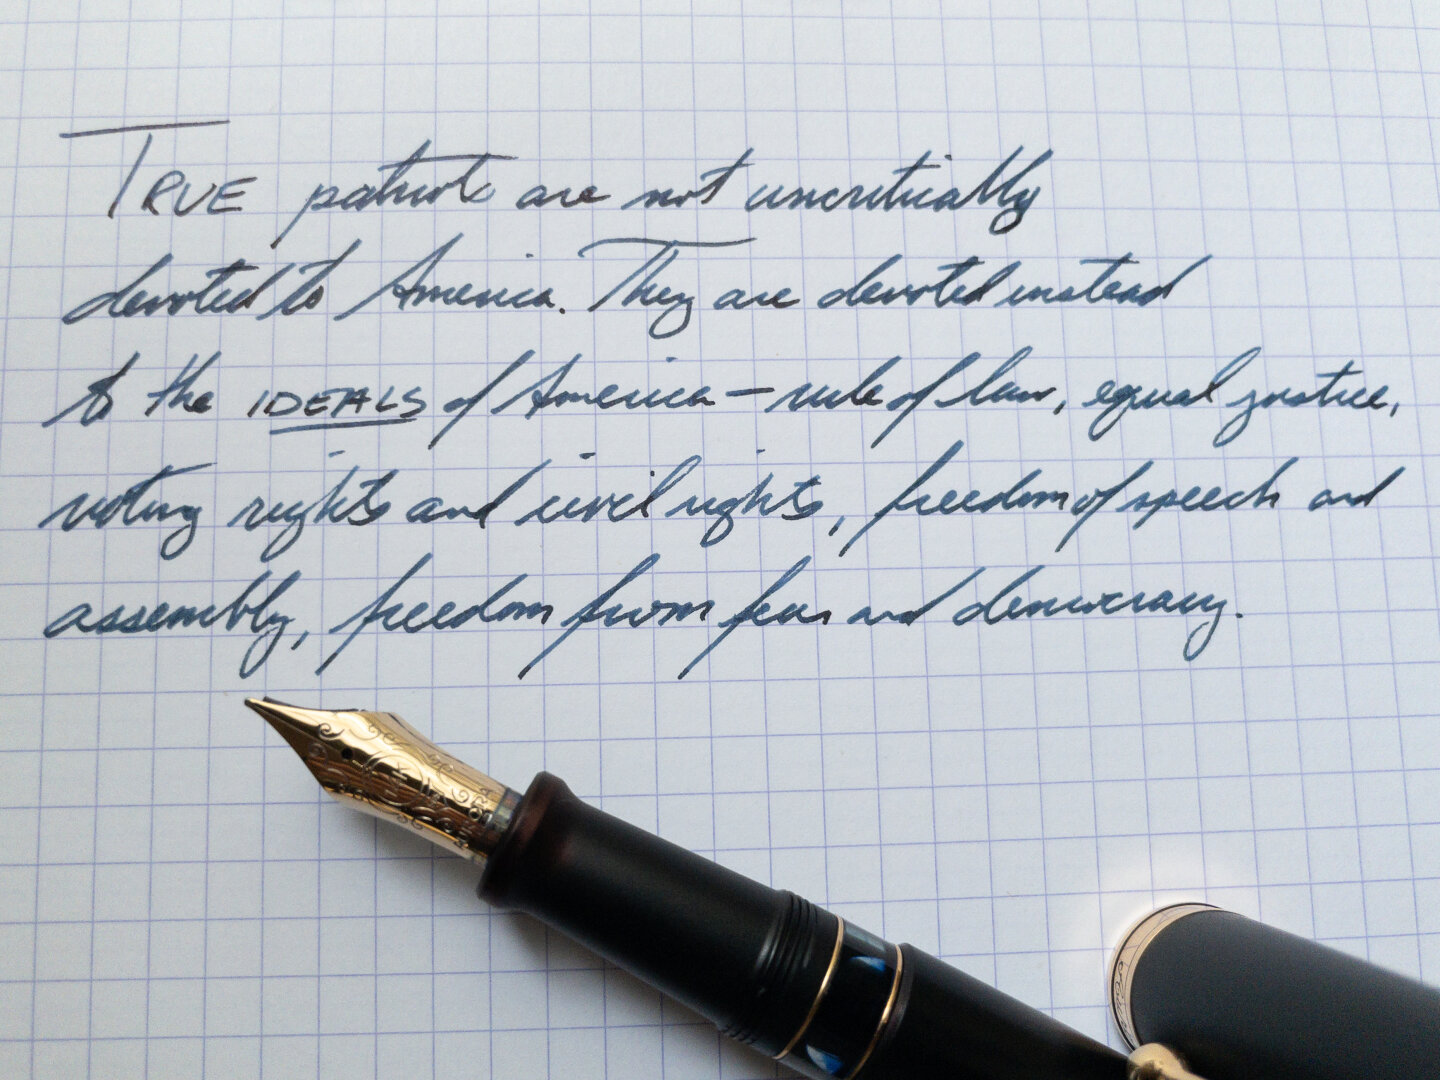 TRUE patriots are not uncritically
devoted to America. They are devoted instead
to the IDEALS of America — rule of law, equal justice,
voting rights and civil rights, freedom of speech and
assembly, freedom from fear and democracy.